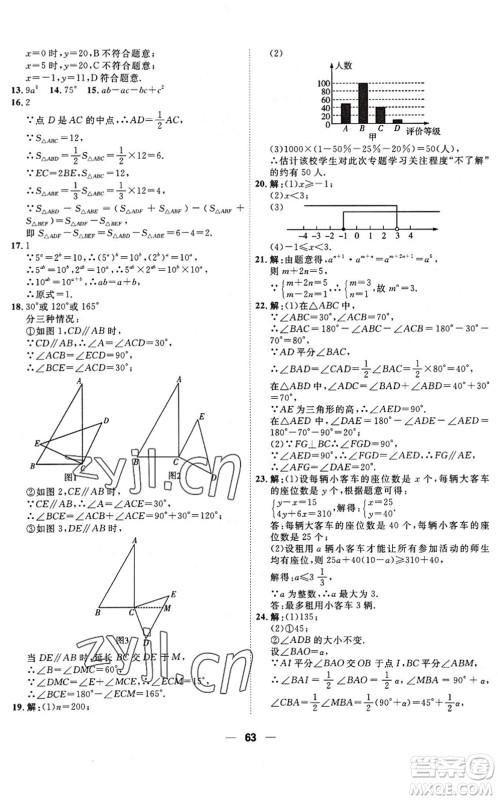 x=0时，y=20，B不符合题意；
x=5时，y=20，C不符合题意；
y=10时，x=11，D符合题意.
13. 9a⁸ 14. 75° 15. ab-ac-bc+c²
16. 2
∵点D是AC的中点，∴AD=1/2 AC.
∵S△ABC=12，
∴S△ABD=1/2 S△ABC=1/2×12=6.
∵EC=2BE，S△ABC=12，
∴S△ABE=1/3 S△ABC=1/3×12=4.
∵S△ABD-S△ABE=(S△ADF+S△ABF)-(S△ABF+S△BEF)=S△ADF-S△BEF，
即S△ADF-S△BEF=S△ABD-S△ABE=6-4=2.
17. 1
18. 30°或120°或165°
分三种情况：
①如图1，CD∥AB时，
∵CD∥AB，∴∠BAC=∠ACD=30°.
∵∠ACB=∠ECD=90°，
∴∠ACE=60°，
图1
图2
②如图2，CE∥AB时，
∵CE∥AB，∴∠A=∠ACE=30°，
∴∠BCE=∠ACB+∠ACE=120°.
③如图3，DE∥AB时，
图3
当DE∥AB时，延长BC交DE于M，
∴∠B=∠DMC=60°.
∴∠BCE=180°-∠ECM=165°.
19. 解：(1)n=200；
(2)
人数
100
80
60
40
20
0
A B C D 评价等级
甲
(3)1000×(1-50%-25%-20%)=50(人)，
∴估计该校学生对此次专题学习关注程度“不了解”的有50人.
20. 解：(1)x≥-1；
(2)x<3；
(3)
-4 -3 -2 -1 0 1 2 3 4
(4)-1≤x<3.
21. 解：由题意得，
则m+2n=5.
∵{m+2n=5, m-2n=1 ∴{m=3, n=1. 故mⁿ=3.
22. 解：(1)在△ABC中，
∵∠ABC=30°，∠C=70°，
∴∠BAC=180°-∠ABC-∠C=80°.
∵AD平分∠BAC，
∴∠BAD=∠CAD=1/2∠BAC=40°.
在△ABD中，∠ADE=∠ABC+∠BAD=30°+40°=70°.
∵AE为三角形的高，∴∠AED=90°.
在△AED中，∠DAE=180°-∠ADE-∠AED=180°-70°-90°=20°.
(2)∵FG⊥BC，∴∠FGD=90°.
∵∠AED=90°，∴∠FGD=∠AED.
∴FG∥AE，∴∠AFG=∠DAE=20°.
23. 解：(1)设每辆小客车的座位数是x个，每辆大客车的座位数是y个，根据题意可得：
{y-x=15, 4y+6x=310 解得：{x=25, y=40.
答：每辆大客车的座位数是40个，每辆小客车的座位数是25个；
(2)设租用a辆小客车才能让所有参加活动的师生均有座位，则25a+40(10-a)≥310+40.
解得：a≤3 1/3，
∵a为整数，∴a最大为3.
答：最多租用小客车3辆.
24. 解：(1)135；
(2)①45；
②∠ADB的大小不变.
设∠BAO=α，
∵AI平分∠BAO，BC平分∠ABM，
∴∠BAI=1/2∠BAO=1/2α，
∠CBA=1/2∠MBA=1/2(90°+α)=45°+1/2α.
63
zyjl.cn